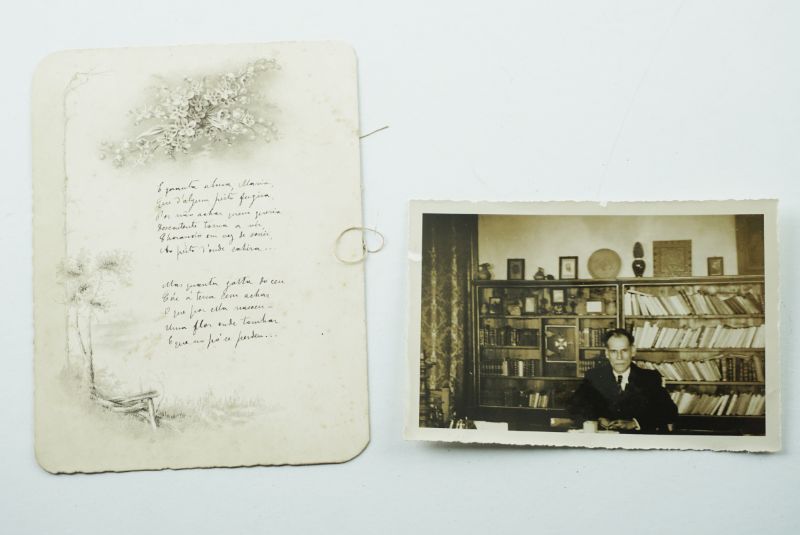 E quanta alma, Maria,
Que d'algum peito fugira,
Por não achar quem queria
descontente torna a vir,
Chorando em vez de sorrir,
Ao peito d'onde cahira...
Mas quanta gotta do ceu
Cáe á terra sem achar
O que por ella
Uma flor onde tombar
E que no pó se perdeu...